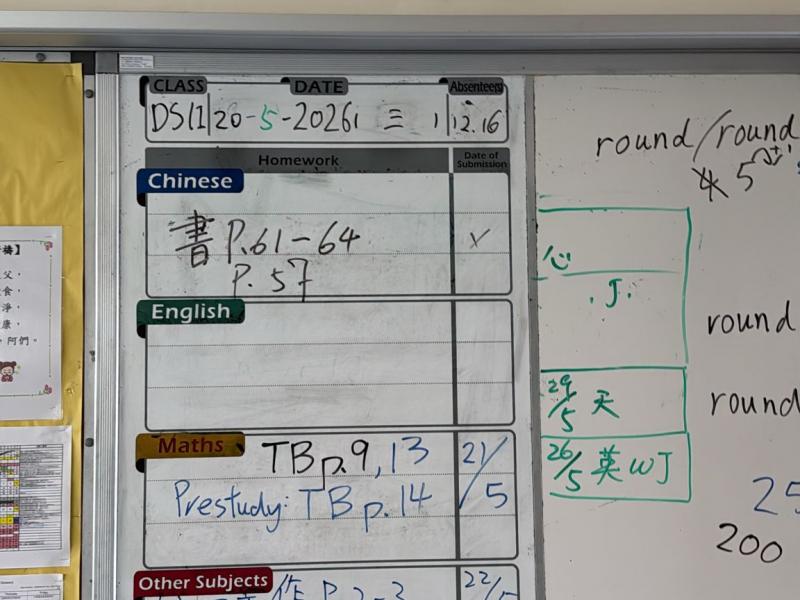 CLASS DATE Absentees
20-5-2026 三 1, 12.16
Homework Date of Submission
Chinese
書 P.61-64
P.57
English
Maths
TB p.9, 13 21/5
Prestudy: TB p.14
Other Subjects
作 P.2-3 22/5
round/round
5
心
.J.
round
29/5 天
round
26/5 英 WJ
25
200
父，
食，
淨，
康，
，阿們。